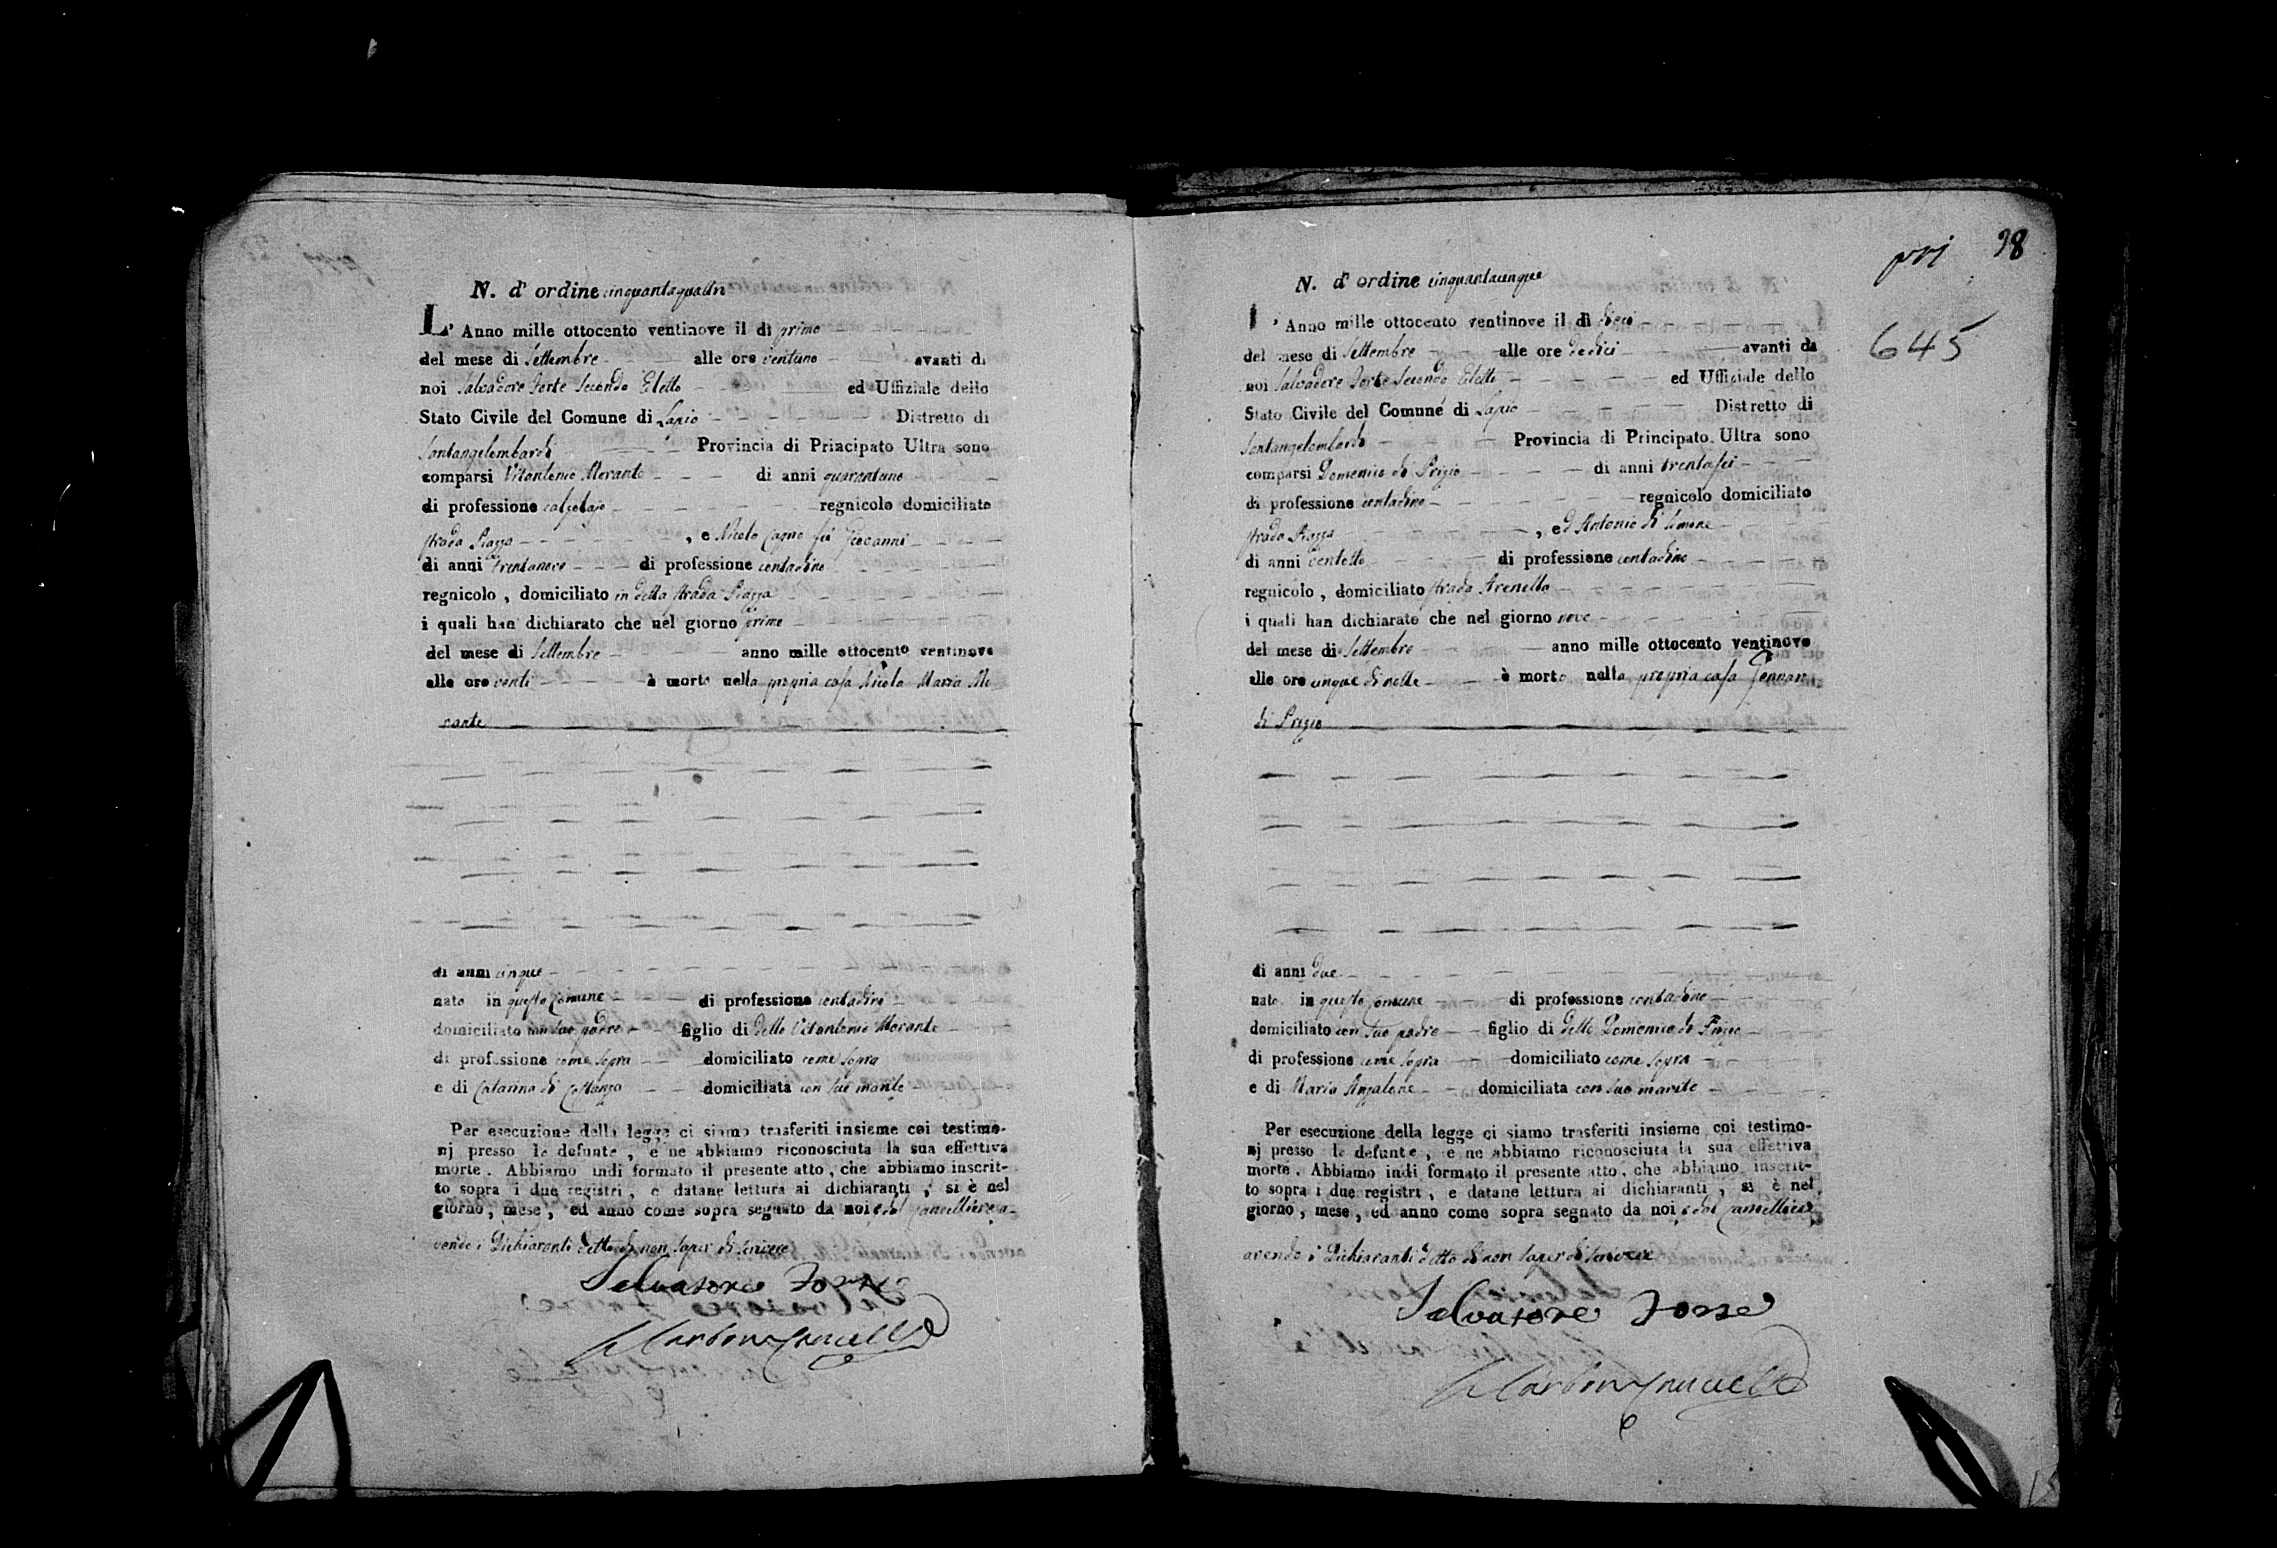 N. d' ordine cinquantaquattro
L' Anno mille ottocento ventinove il dì primo
del mese di Settembre alle ore ventuno avanti di
noi Salvadore Forte Secondo Eletto ed Uffiziale dello
Stato Civile del Comune di Lapio Distretto di
Santangelombardi Provincia di Principato Ultra sono
comparsi Vitantonio Morante di anni quarantuno
di professione calzolajo regnicolo domiciliato
strada Piazza , e Nicola Cagno fu Giovanni
di anni trentanove di professione contadino
regnicolo , domiciliato in detta strada Piazza
i quali han dichiarato che nel giorno primo
del mese di Settembre anno mille ottocento ventinove
alle ore venti è morto nella propria casa Nicola Maria Mo
rante
di anni cinque
nato in questo Comune di professione contadino
domiciliato con suo padre figlio di detto Vitantonio Morante
di professione come sopra domiciliato come sopra
e di Catarina di Costanzo domiciliata con suo marito
Per esecuzione della legge ci siamo trasferiti insieme coi testimo-
nj presso le defunte , e ne abbiamo riconosciuta la sua effettiva
morte . Abbiamo indi formato il presente atto , che abbiamo inscrit-
to sopra i due registri , e datane lettura ai dichiaranti , si è nel
giorno , mese , ed anno come sopra segnato da noi e dal Cancelliere a-
vendo i Dichiaranti detto di non saper di scrivere
Salvatore Forte
Carbone Cancelle
pri 98
645
N. d' ordine cinquantacinque
L' Anno mille ottocento ventinove il dì dieci
del mese di Settembre alle ore dodici avanti di
noi Salvadore Forte Secondo Eletto ed Uffiziale dello
Stato Civile del Comune di Lapio Distretto di
Santangelombardi Provincia di Principato Ultra sono
comparsi Domenico di Prizio di anni trentasei
di professione contadino regnicolo domiciliato
strada Piazza , ed Antonio di Simone
di anni ventotto di professione contadino
regnicolo , domiciliato strada Arenella
i quali han dichiarato che nel giorno nove
del mese di Settembre anno mille ottocento ventinove
alle ore cinque di notte è morto nella propria casa Gennaro
di Prizio
di anni due
nato in questo Comune di professione contadino
domiciliato con suo padre figlio di detto Domenico di Prizio
di professione come sopra domiciliato come sopra
e di Maria Anzalone domiciliata con suo marito
Per esecuzione della legge ci siamo trasferiti insieme coi testimo-
nj presso le defunte , e ne abbiamo riconosciuta la sua effettiva
morte . Abbiamo indi formato il presente atto , che abbiamo inscrit-
to sopra i due registri , e datane lettura ai dichiaranti , si è nel
giorno , mese , ed anno come sopra segnato da noi e dal Cancelliere
avendo i Dichiaranti detto di non saper di scrivere
Salvatore Forte
Carbone Cancelle